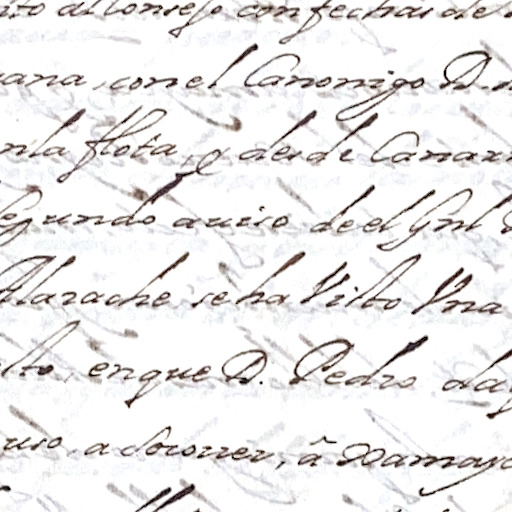 ito al Consejo con fechas de
ana, con el Canonigo D.
n la flota, q desde Canar
Segundo auiso de el Gnl
Alarache se ha Visto Vna
lto, en que D. Pedro da
uso, a socorrer, â Damaso